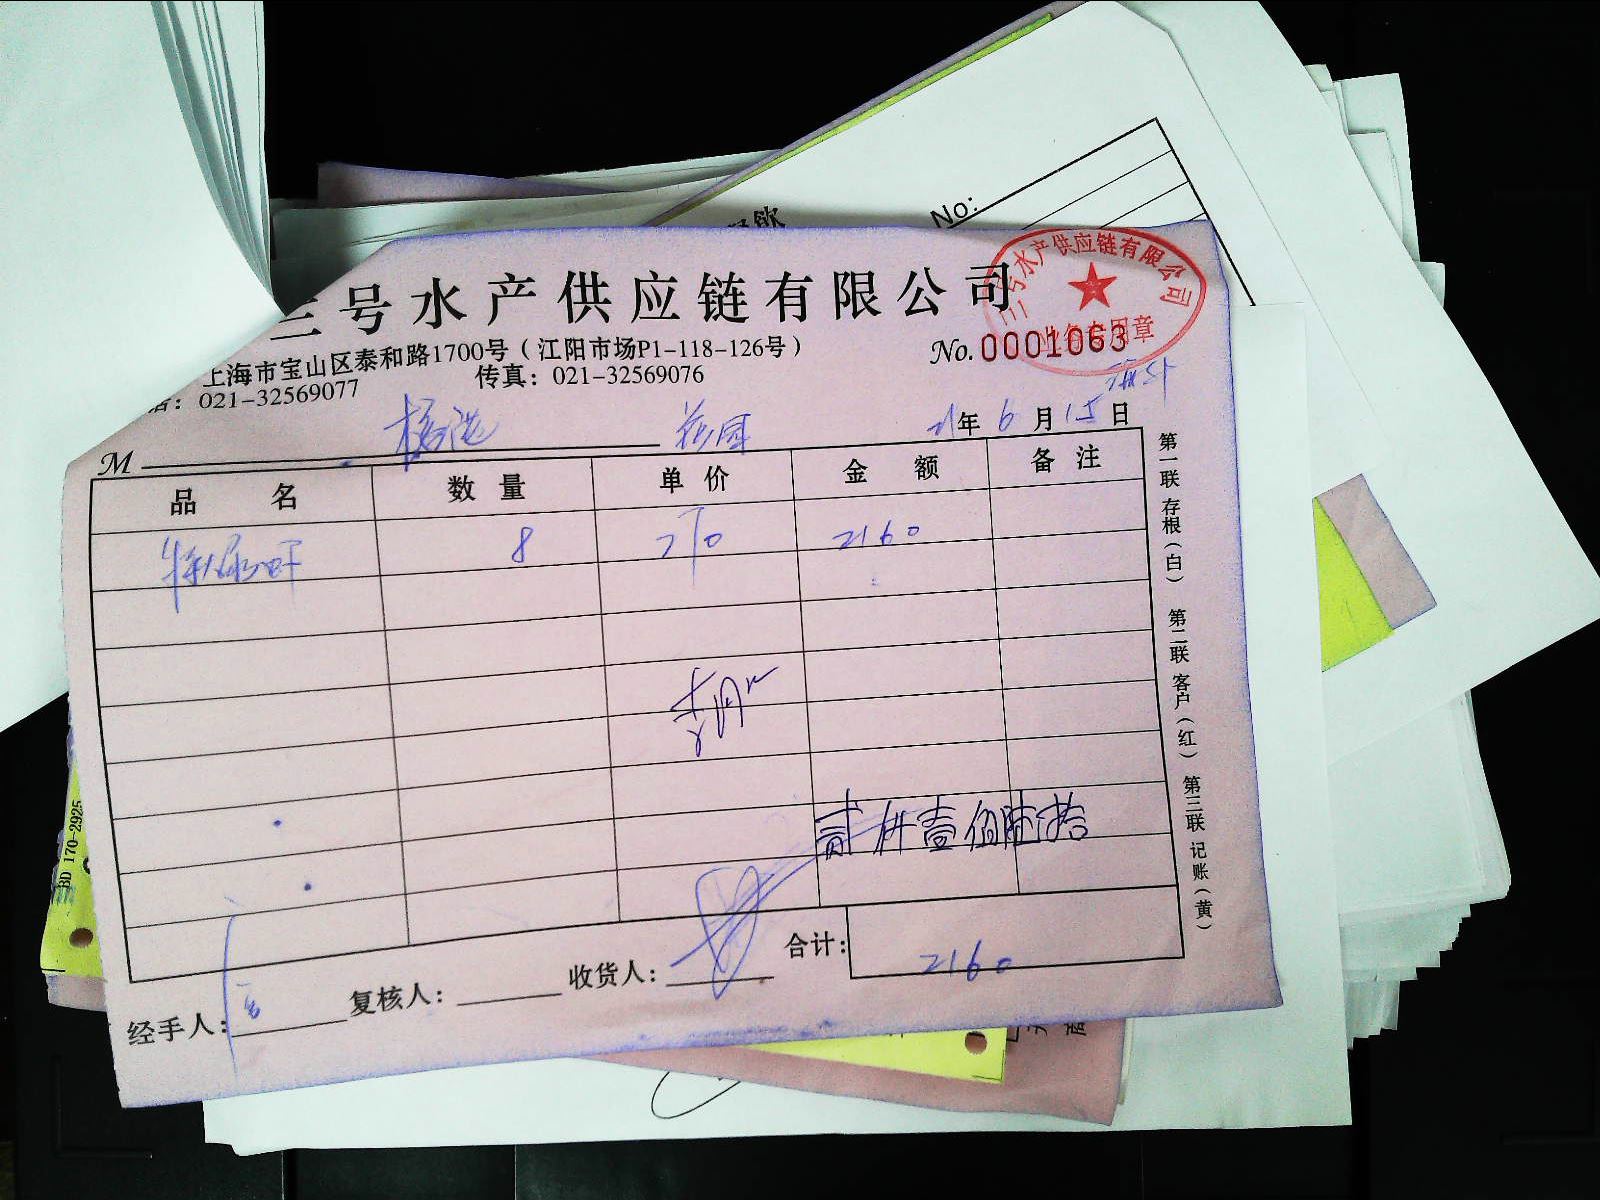 No:
三号水产供应链有限公司
三号水产供应链有限公司
上海市宝山区泰和路1700号（江阳市场P1-118-126号）
No. 0001063
021-32569077 传真：021-32569076
21年 6 月 15 日
M
品 名 数 量 单 价 金 额 备 注
8 270 2160
贰仟壹佰陆拾
合计： 2160
收货人：
复核人：
经手人：
第一联 存根（白） 第二联 客户（红） 第三联 记账（黄）
BD 170-2925